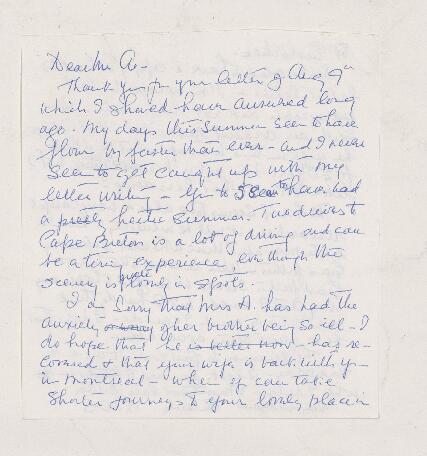 Dear Mr A—
Thank you for your letter of Aug 9th
which I should have answered long
ago. My days this summer seem to have
flown by faster than ever – and I never
seem to get caught up with my
letter writing – You to seem to have had
a pretty hectic summer. Two drives to
Cape Breton is a lot of driving and can
be a tiring experience, even though the
scenery is quite lovely in spots.
I am sorry that Mrs A. has had the
anxiety of her brother being so ill – I
do hope that he is better now – has re-
covered & that your wife is back with you
in Montreal – where you can take
shorter journeys to your lovely place in